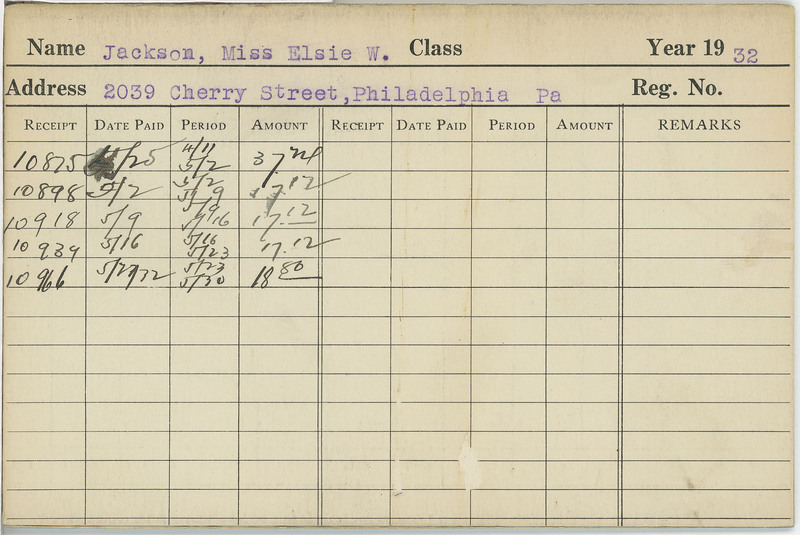 Name Jackson, Miss Elsie W. Class Year 19 32
Address 2039 Cherry Street,Philadelphia Pa Reg. No.
RECEIPT DATE PAID PERIOD AMOUNT RECEIPT DATE PAID PERIOD AMOUNT REMARKS
4/11
10875 4/25 5/2 37.24
5/2
10898 5/2 5/9 17.12
5/9
10918 5/9 5/16 17.12
5/16
10939 5/16 5/23 17.12
5/23
10966 5/30 18 80